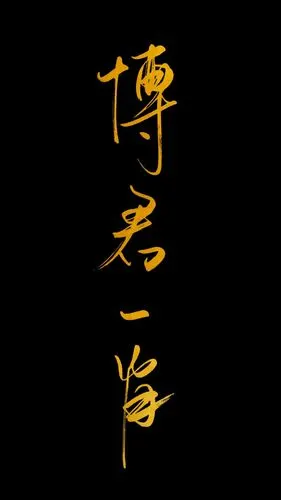 博君一肖